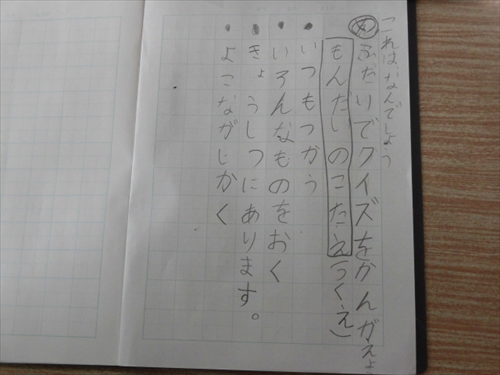 これはなんでしょう
めふたりでクイズをかんがえよ
もんだいのこたえ(つくえ)
・いつもつかう
・いろんなものをおく
・きょうしつにあります。
・よこながしかく